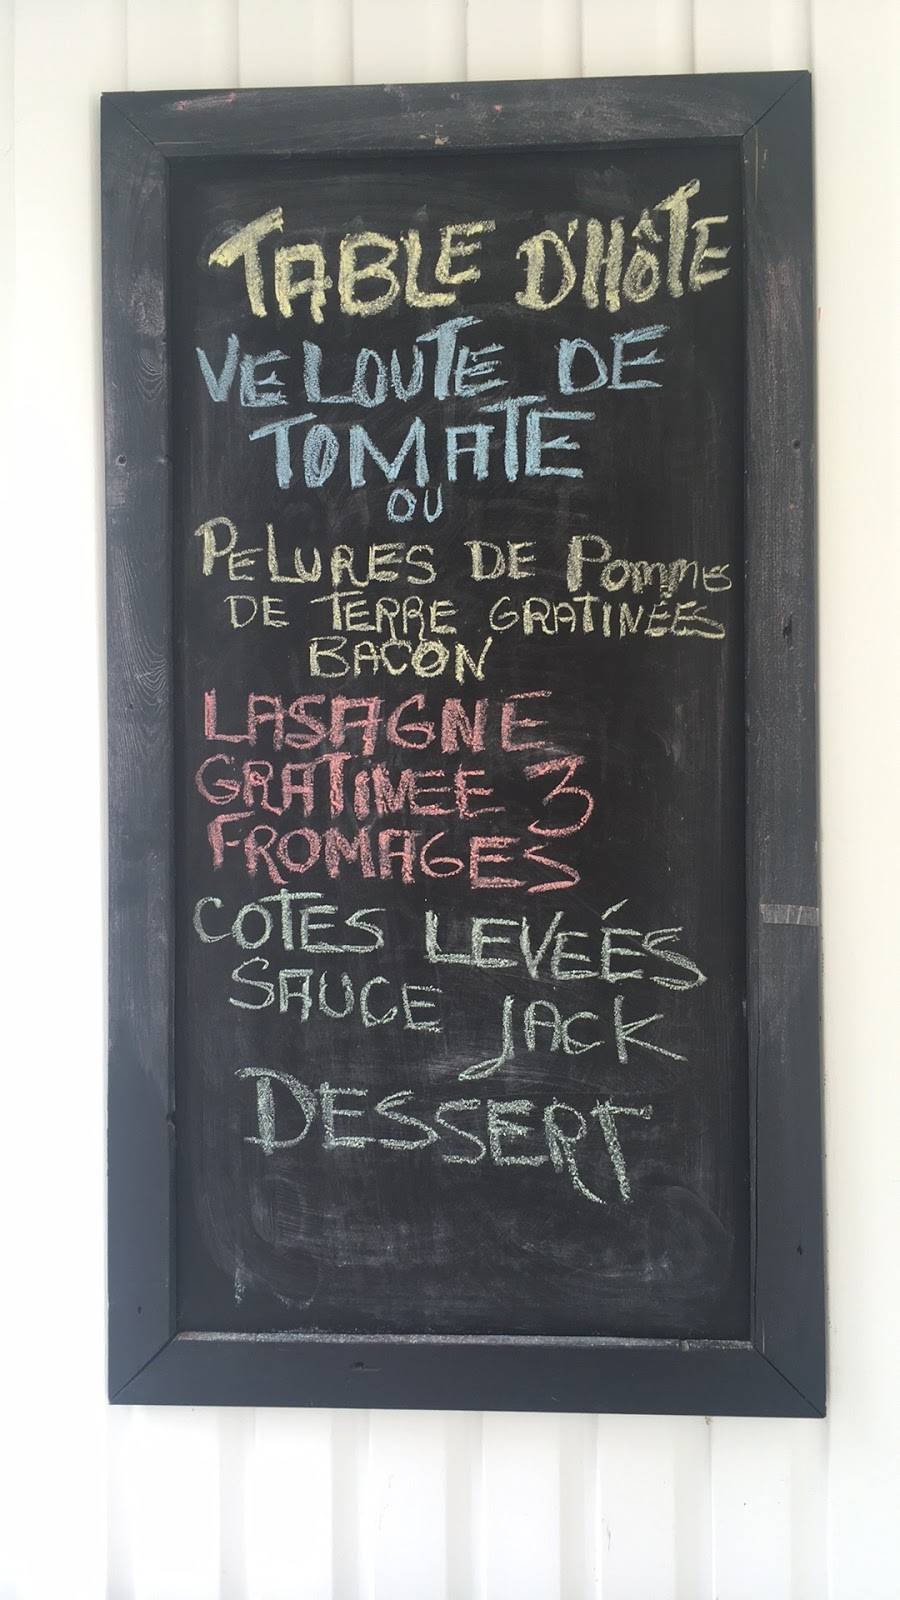 TABLE D'HÔTE
VELOUTE DE
TOMATE
OU
PELURES DE POMMES
DE TERRE GRATINÉES
BACON
LASAGNE
GRATINEE 3
FROMAGES
COTES LEVEÉS
SAUCE JACK
DESSERT